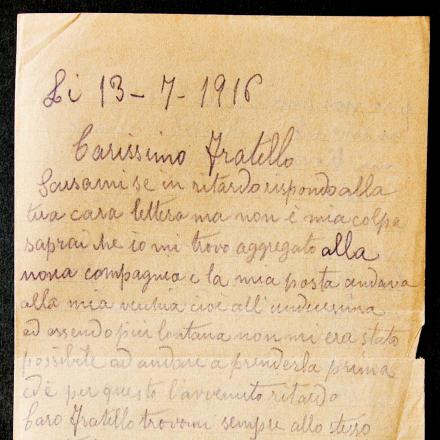 Li 13 - 7 - 1916
Carissimo Fratello
Scusami se in ritardo rispondo alla
tua cara lettera ma non è mia colpa
saprai che io mi trovo aggregato alla
nona compagnia e la mia posta andava
alla mia vechia cioè all'undicesima
ed essendo piu lontana non mi era stato
possibile ad andare a prenderla prima
ed è per questo l'avvenuto ritardo
Caro Fratello trovomi sempre allo steso